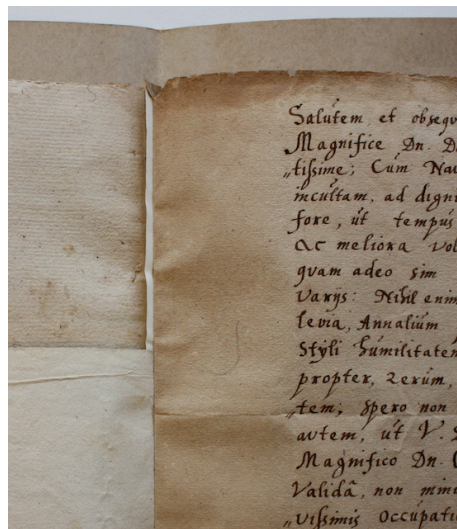 Salútem et obseqv
Magnifice Dn. D
„tißime; Cúm Nav
incultam, ad digni
fore, út tempús
ac meliora vol
qvam adeo sim
Varijs: Nihil enim
levia, Annalium
Styli húmilitatem
propter, rerúm,
„tem; spero non
avtem, út V.
Magnifico Dn.
Validâ, non min
„vißimis occúpati